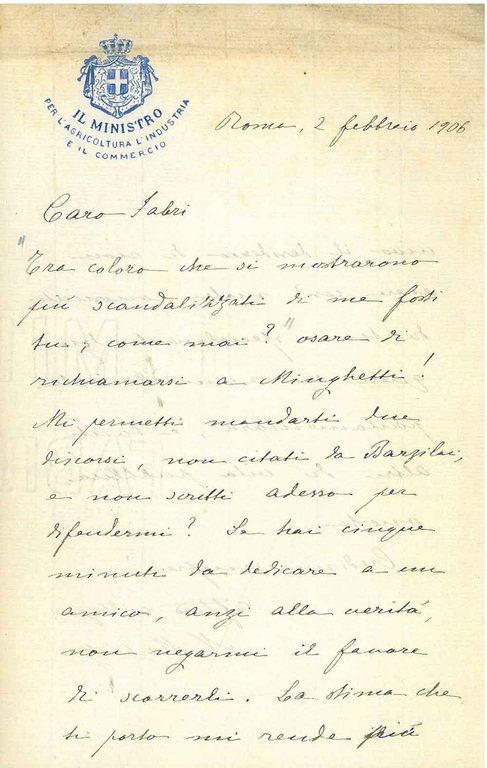 IL MINISTRO
PER L'AGRICOLTURA L'INDUSTRIA
E IL COMMERCIO
Roma, 2 febbraio 1906
Caro Fabri
Tra coloro che si mostrarono
più scandalizzati di me fosti
tu, come mai? osare di
richiamarsi a Minghetti!
Mi permetti mandarti due
discorsi, non citati da Barzilai,
e non scritti adesso per
difendermi? Se hai cinque
minuti da dedicare a un
amico, anzi alla verità,
non negarmi il favore
di scorrerli. La stima che
ti porto mi rende più